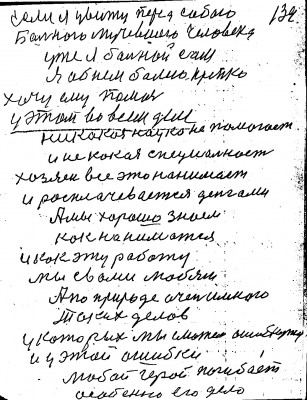 если я увижу перед собою 132
Больного мучевшего человека
уже я больной сам
Я обнем больно крепко
хочу ему помоч
у этом во всем деле
никокая наука не помогает
и не кокая специалност
хозяен все это нанимает
и росплачевается денгами
А мы хорошо знаем
кок наниматся
и кок эту работу
мы с вами любли
А по природе очен много
Таких делов
у которых мы сможем
и у этой ошибки
любой герой погибает
особенно его дело